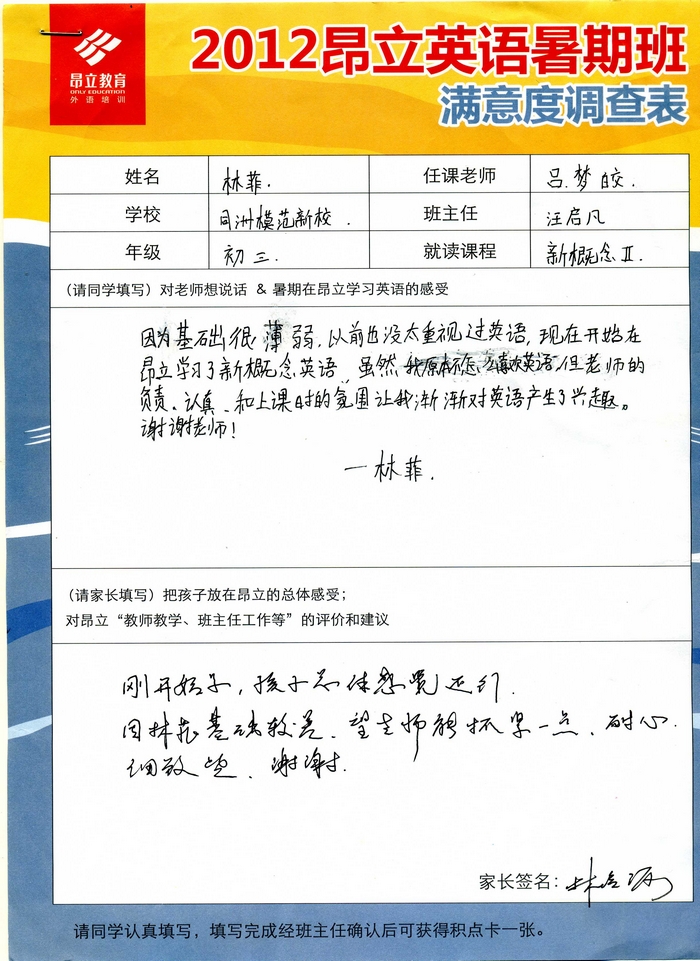 昂立教育
ONLY EDUCATION
外语培训
2012昂立英语暑期班
满意度调查表
姓名 林菲. 任课老师 吕梦皎.
学校 同洲模范新校. 班主任 汪启凡
年级 初三. 就读课程 新概念Ⅱ.
(请同学填写)对老师想说话 & 暑期在昂立学习英语的感受
因为基础很薄弱,以前也没太重视过英语,现在开始在
昂立学习了新概念英语,虽然我原本不怎么喜欢英语,但老师的
负责、认真、和上课时的氛围让我渐渐对英语产生了兴趣。
谢谢老师!
—林菲.
(请家长填写)把孩子放在昂立的总体感受;
对昂立“教师教学、班主任工作等”的评价和建议
刚开始学,孩子总体感觉还行.
因林菲基础较差、望老师能抓紧一点、耐心
细致些、谢谢.
家长签名:林
请同学认真填写,填写完成经班主任确认后可获得积点卡一张。